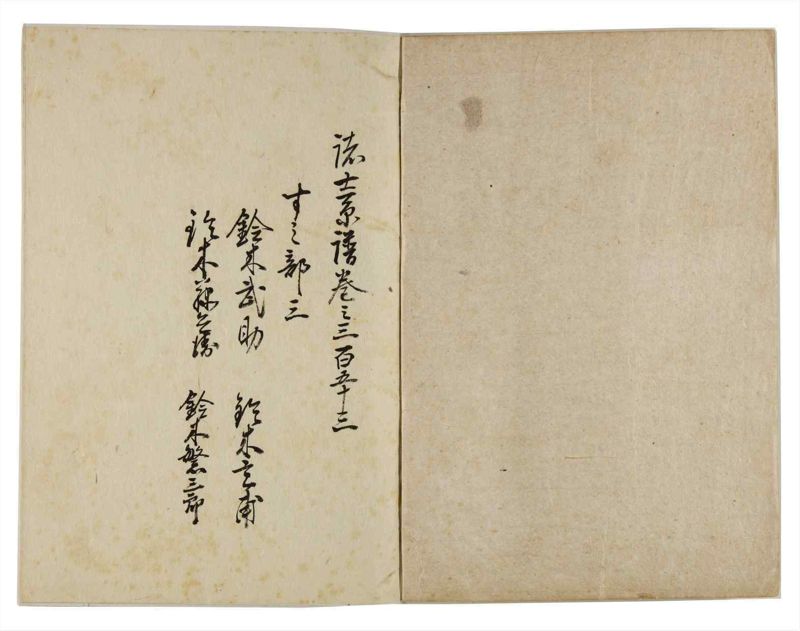 諸士系譜巻之三百五十三
す之部三
鈴木武助　鈴木立甫
鈴木孫兵衛　鈴木繁三郎